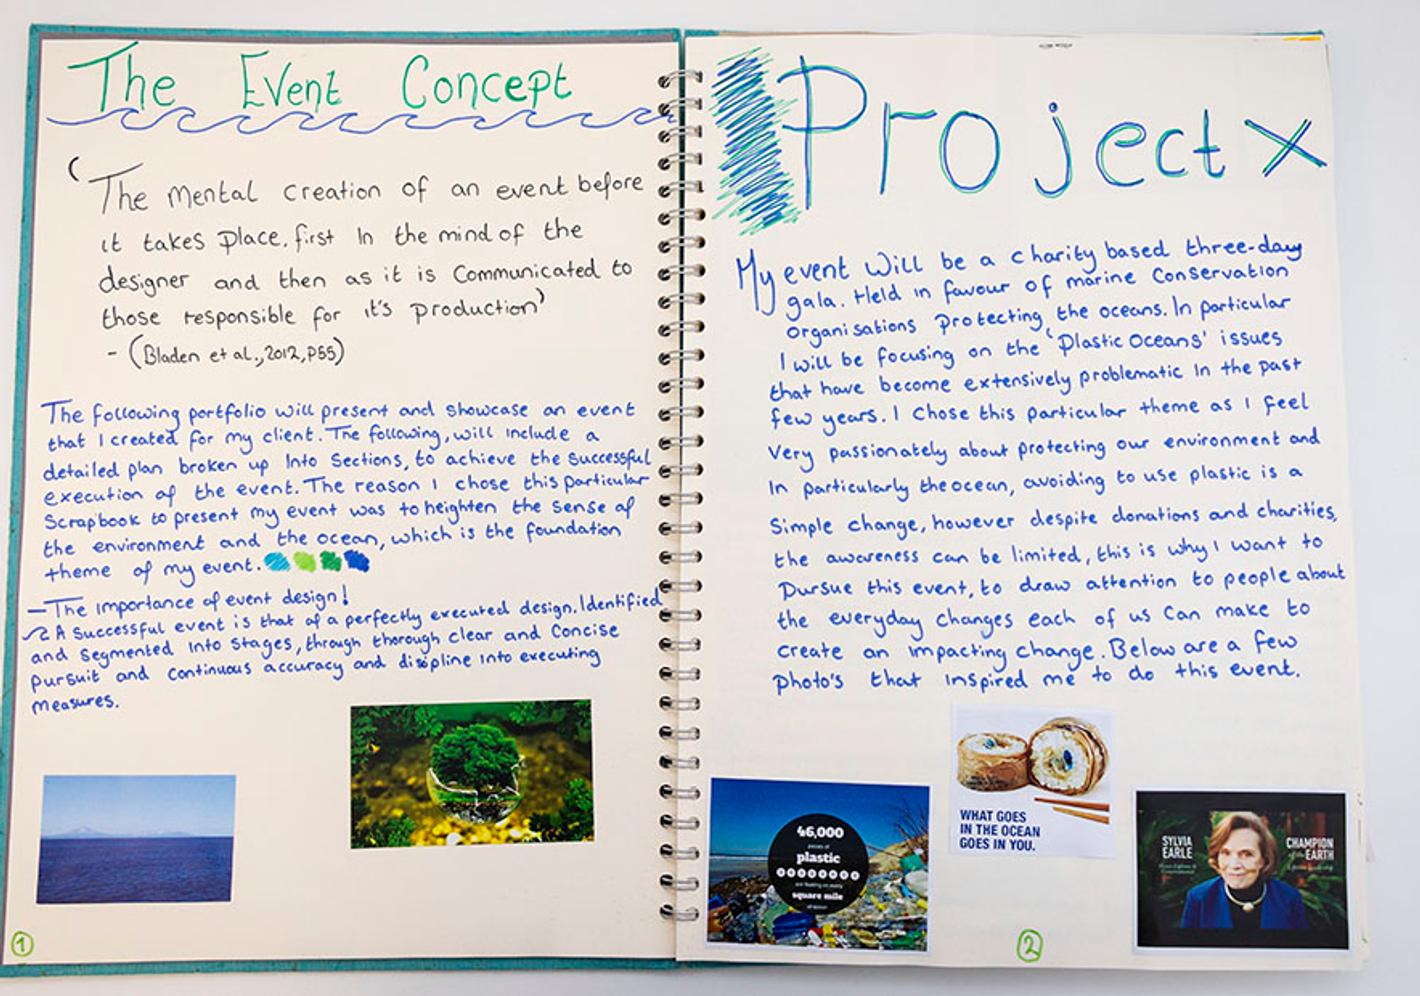 The Event Concept
'The mental creation of an event before
it takes place, first in the mind of the
designer and then as it is communicated to
those responsible for it's production'
- (Bladen et al., 2012, P55)
The following portfolio will present and showcase an event
that I created for my client. The following, will include a
detailed plan broken up into sections, to achieve the successful
execution of the event. The reason I chose this particular
Scrapbook to present my event was to heighten the sense of
the environment and the ocean, which is the foundation
theme of my event.
—The importance of event design!
A successful event is that of a perfectly executed design. Identified
and segmented into stages, through thorough clear and concise
pursuit and continuous accuracy and discipline into executing
measures.
1
Project X
My event will be a charity based three-day
gala. Held in favour of marine conservation
organisations protecting the oceans. In particular
I will be focusing on the 'Plastic Oceans' issues
that have become extensively problematic in the past
few years. I chose this particular theme as I feel
very passionately about protecting our environment and
in particularly the ocean, avoiding to use plastic is a
simple change, however despite donations and charities,
the awareness can be limited, this is why I want to
pursue this event, to draw attention to people about
the everyday changes each of us can make to
create an impacting change. Below are a few
photo's that inspired me to do this event.
46,000
pieces of
plastic
are floating on every
square mile
of ocean
WHAT GOES
IN THE OCEAN
GOES IN YOU.
SYLVIA
EARLE
CHAMPION
of the EARTH
2